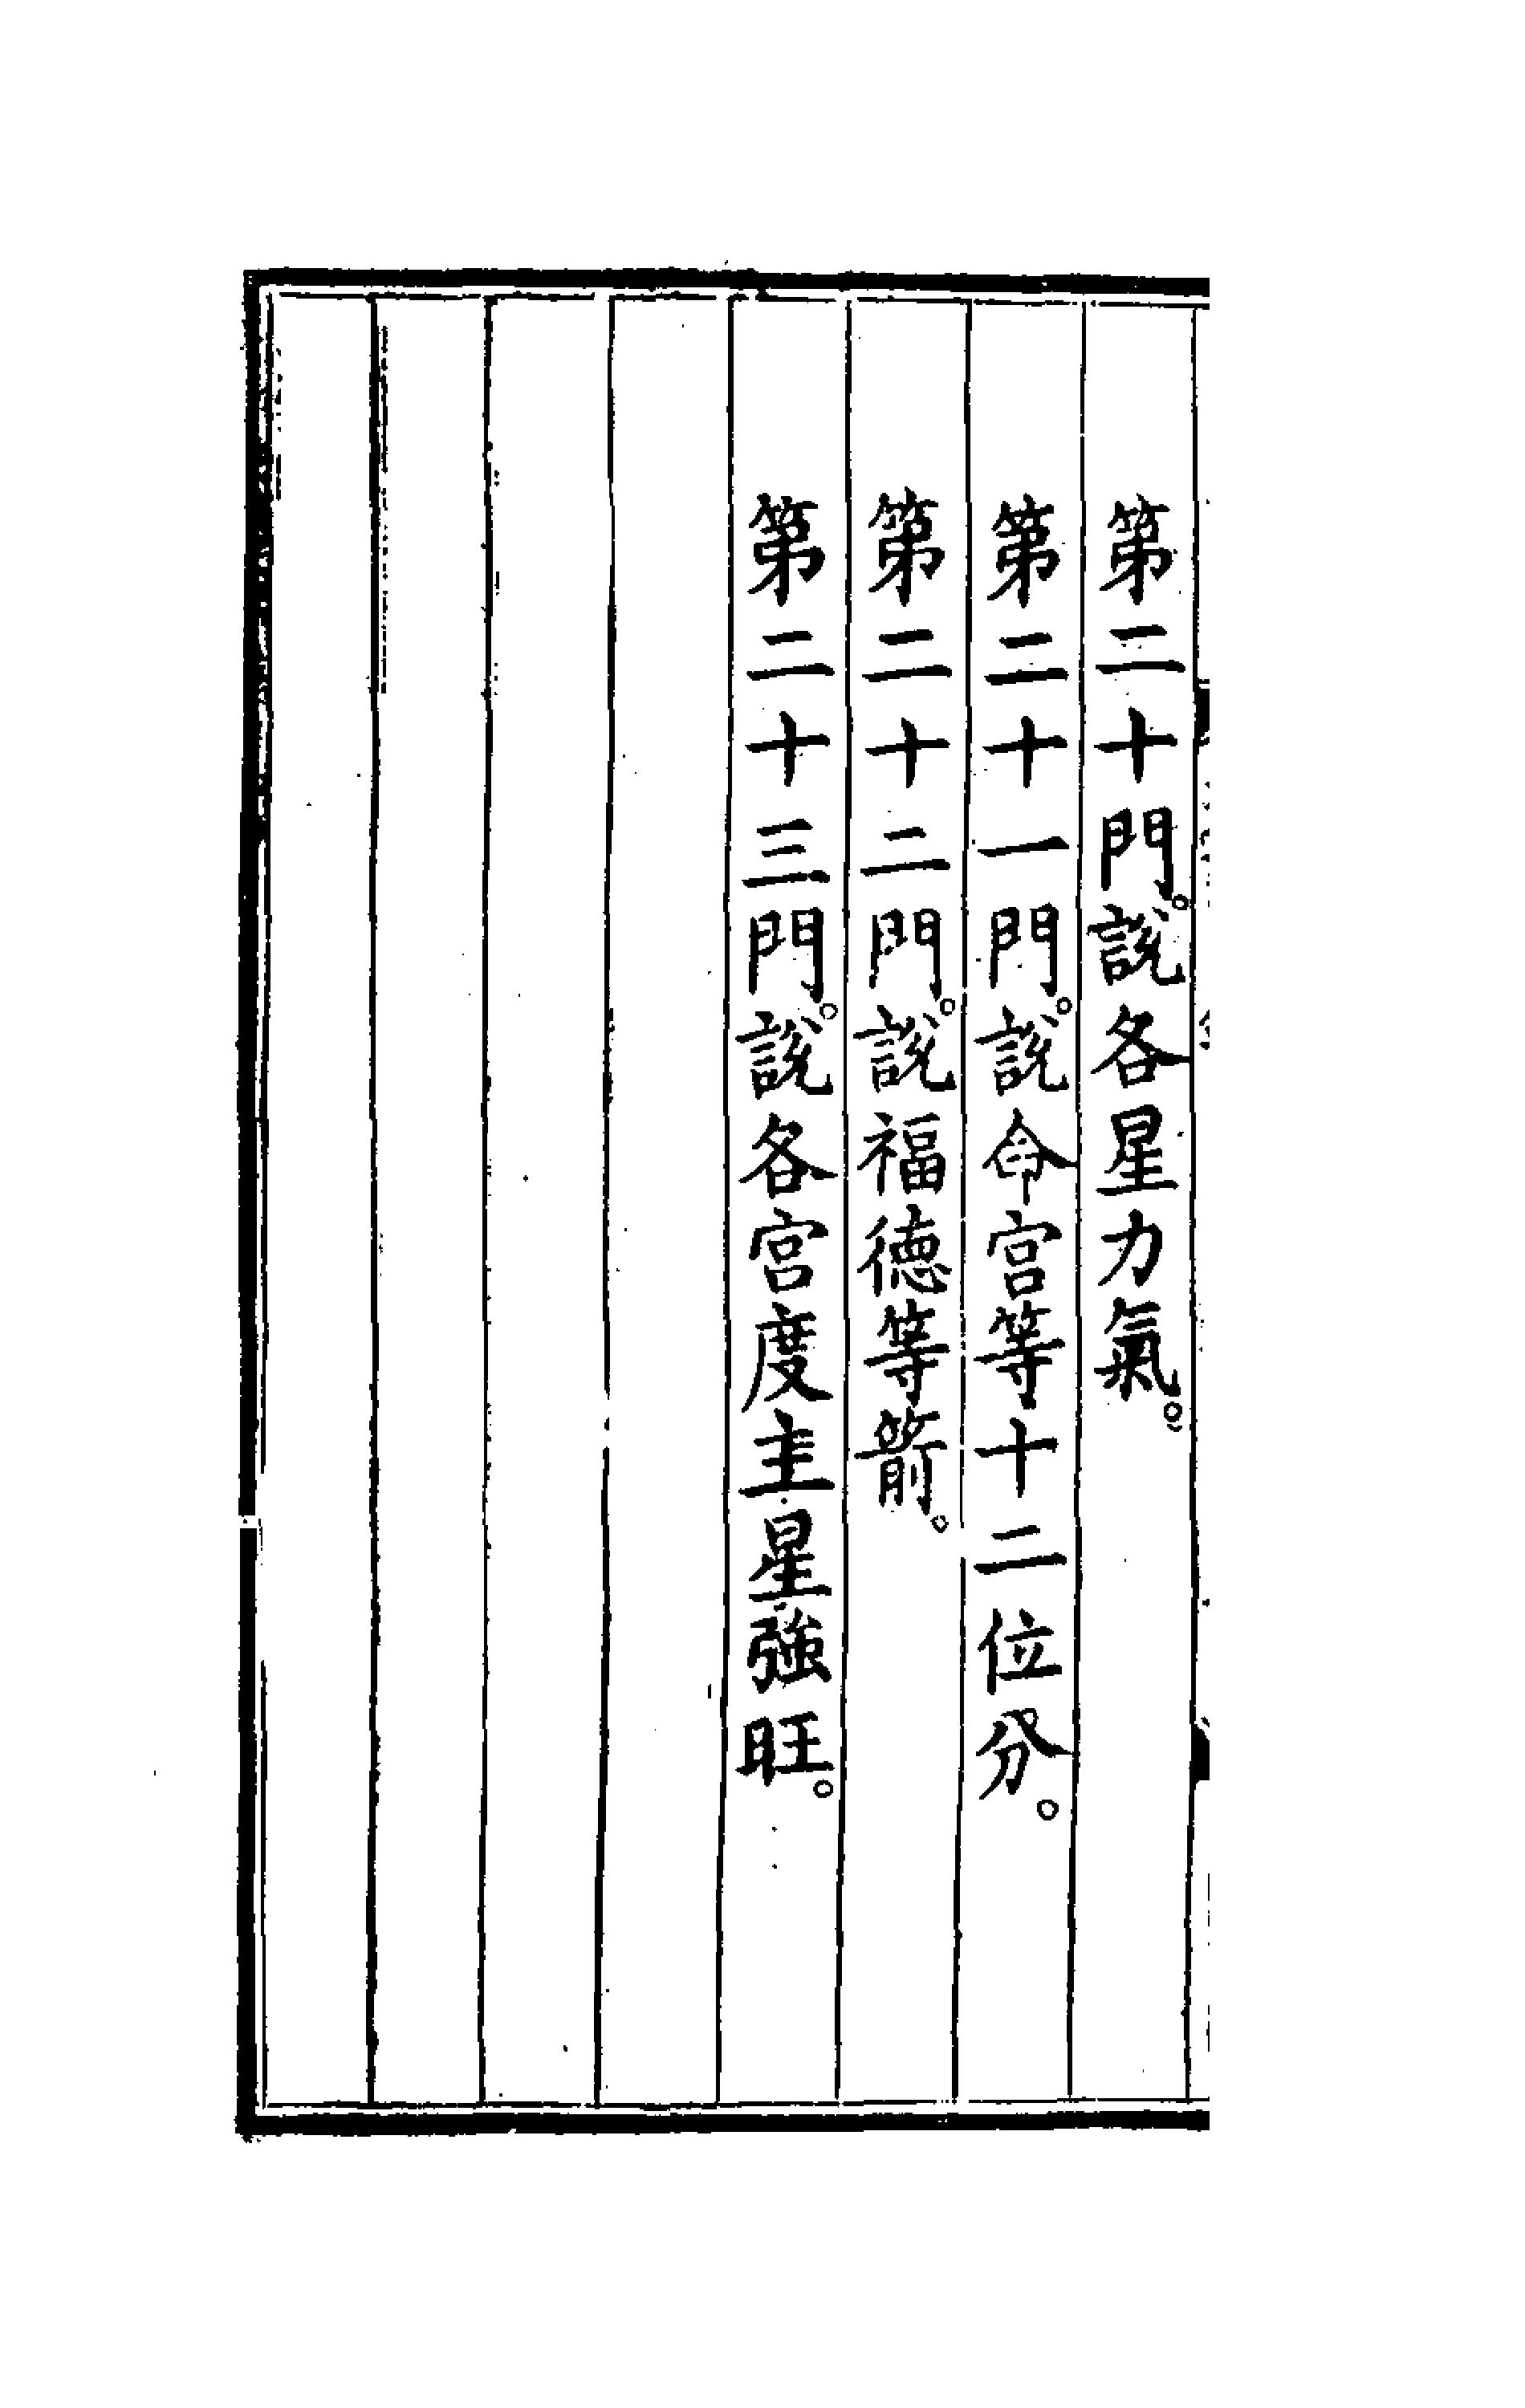 第二十門。說各星力氣。
第二十一門。說命宮等十二位分。
第二十二門。說福德等箭。
第二十三門。說各宮度主星強旺。